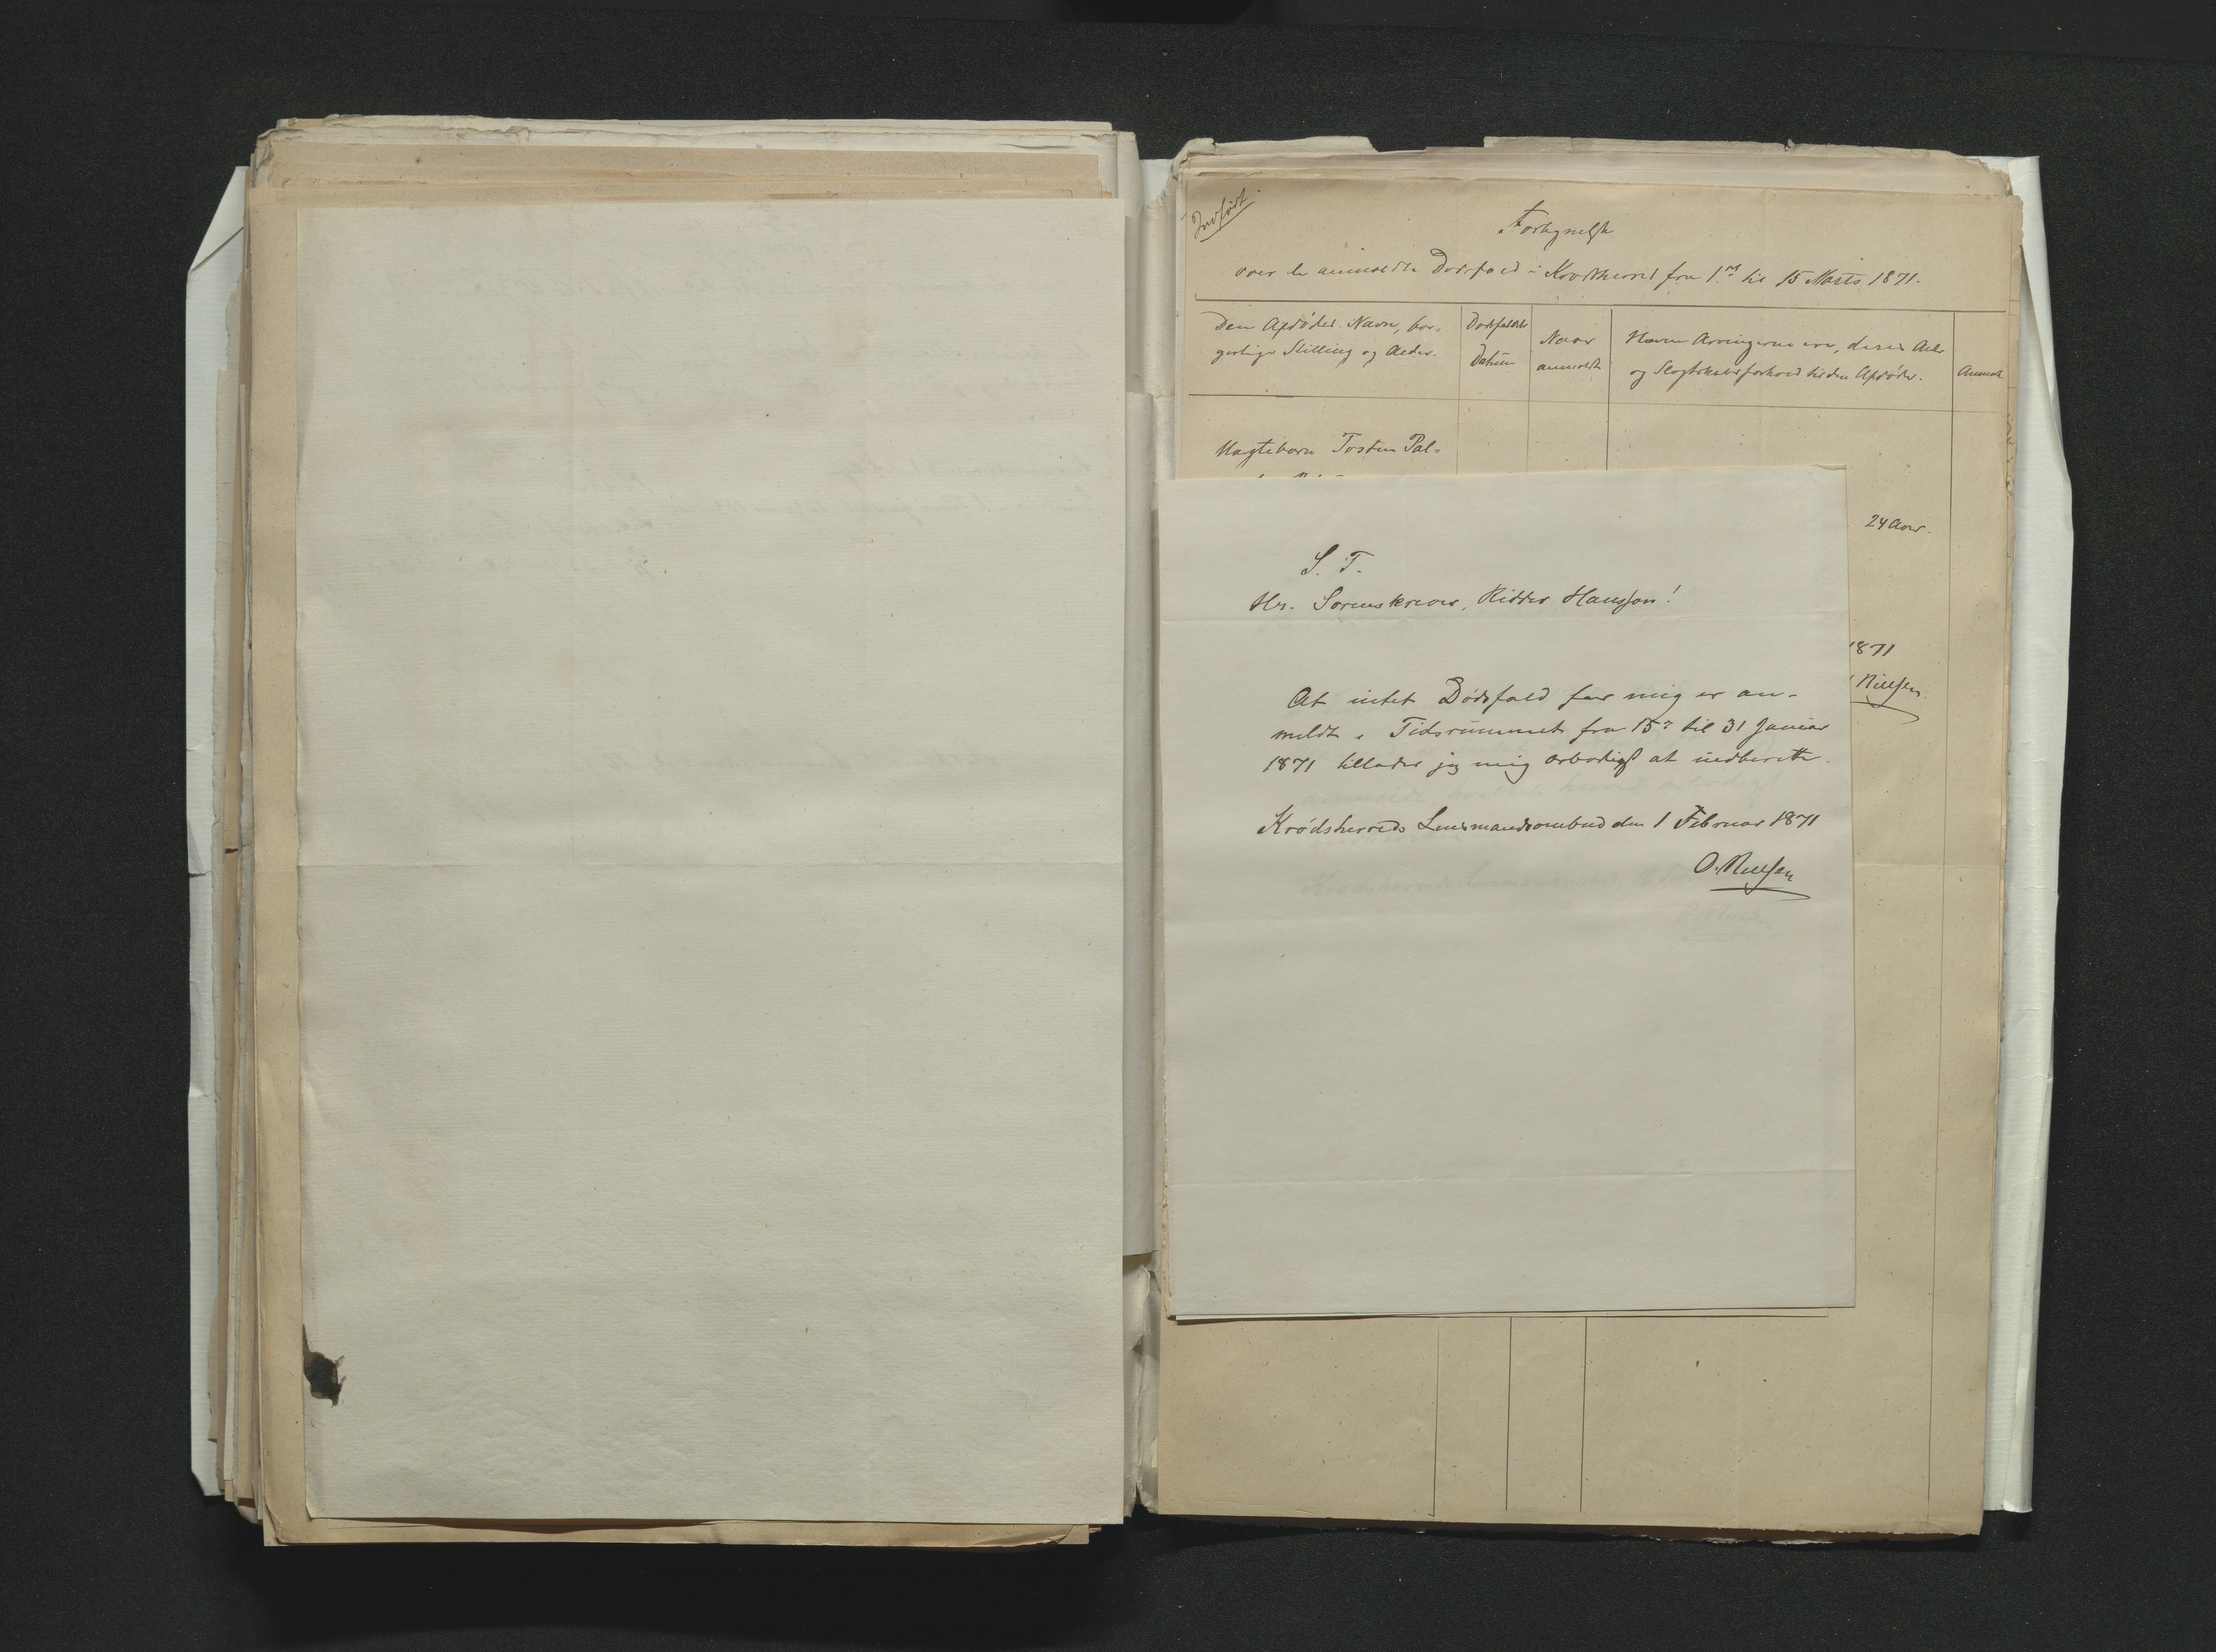 Indført
Fortegnelse
over de anmeldte Dødsfald i Krødsherred fra 1ste til 15 Marts 1871.
Den Afdødes Navn, bor-
gerlige Stilling og Alder.
Dødsfaldets
Datum
Naar
anmeldt
Hvem Arvingerne ere, deres Alder
og Slægtskabsforhold til den Afdøde.
Anmærk
Tosten Pal-
24 Aar.
1871
Nielsen
S. T.
Hr. Sorenskriver, Ridder Hansson!
At intet Dødsfald for mig er an-
meldt i Tidsrummet fra 15de til 31 Januar
1871 tillader jeg mig ærbødigst at indberette.
Krødsherreds Lensmandsombud den 1 Februar 1871
O. Nielsen